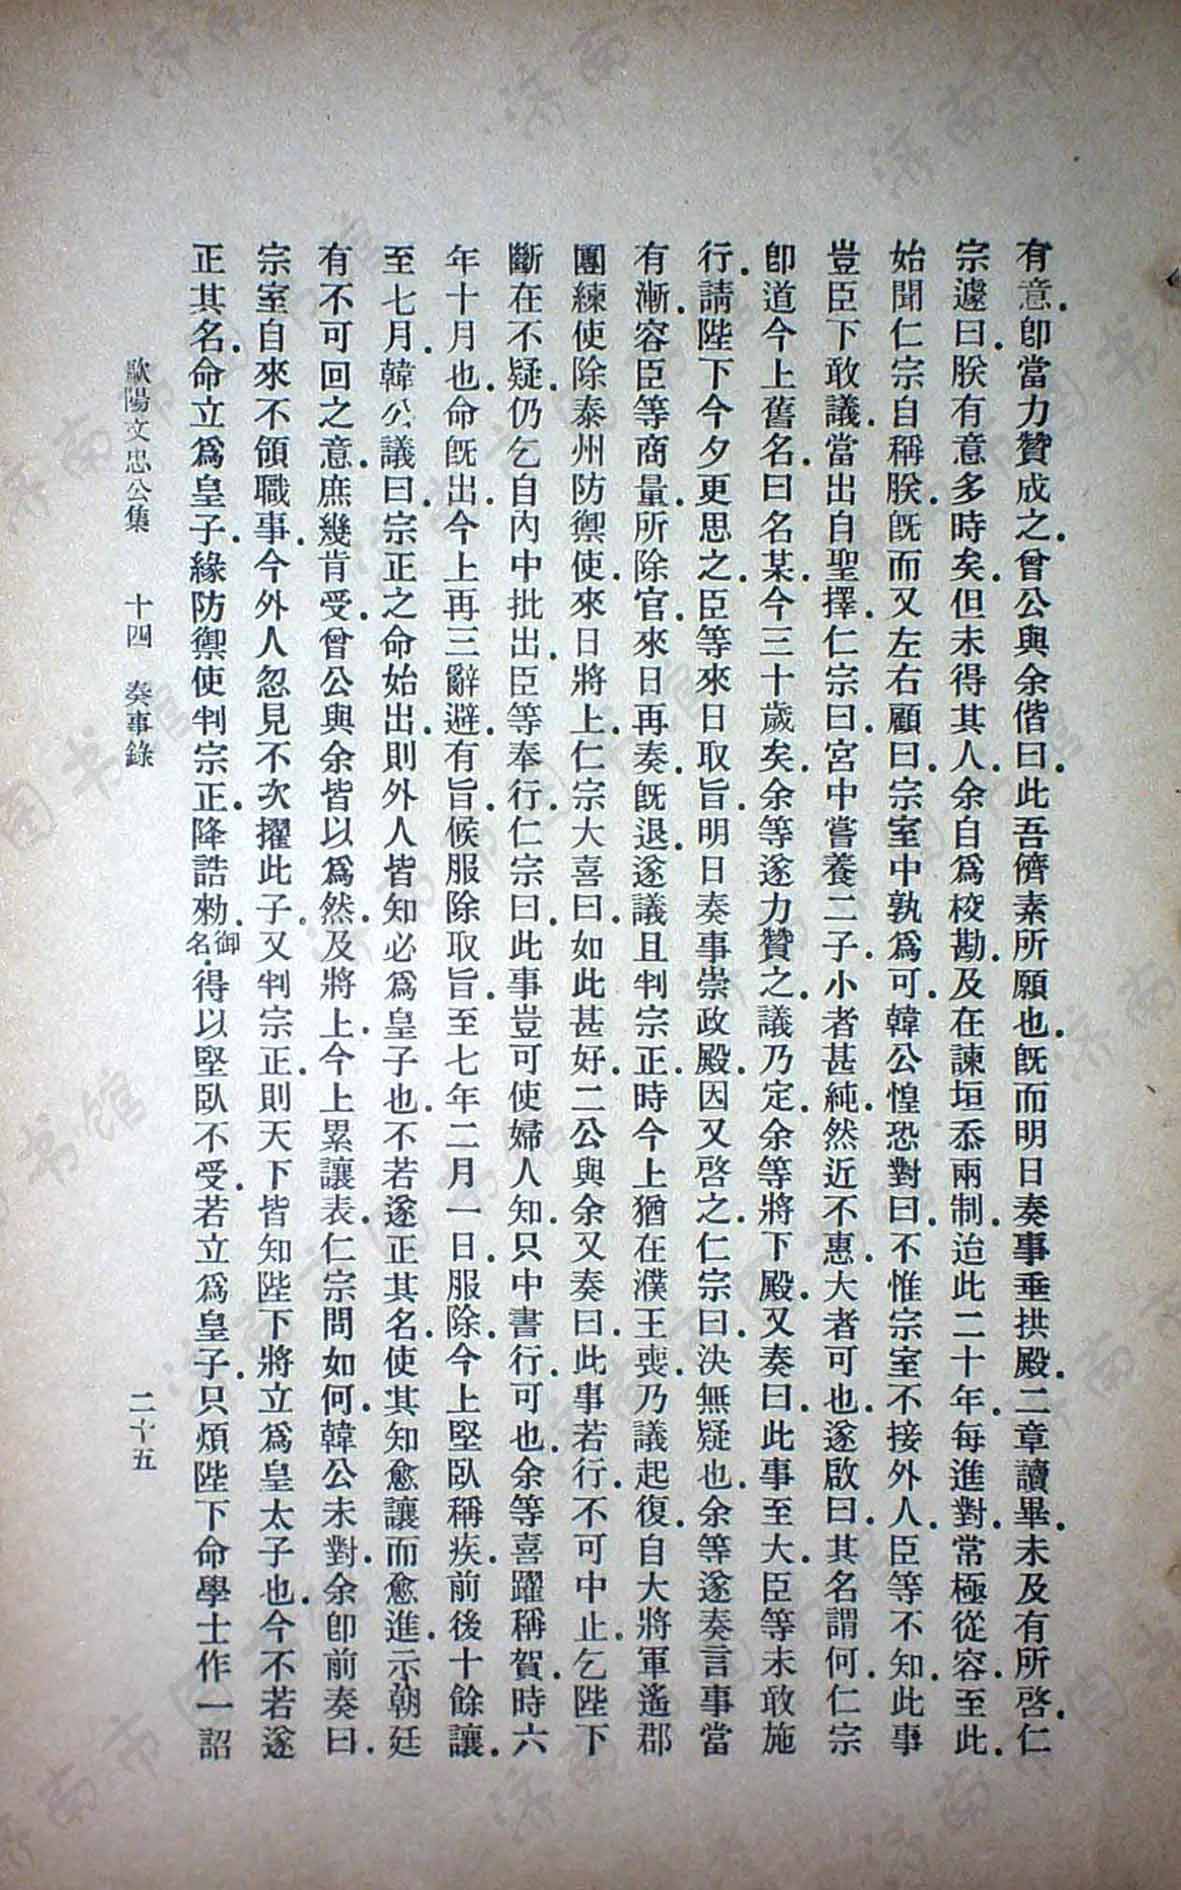 有意.即當力贊成之.曾公與余偕曰.此吾儕素所願也.旣而明日奏事垂拱殿.二章讀畢.未及有所啓.仁
宗遽曰.朕有意多時矣.但未得其人.余自爲校勘.及在諫垣忝兩制.迨此二十年.每進對.常極從容.至此.
始聞仁宗自稱朕.旣而又左右顧曰.宗室中孰爲可.韓公惶恐對曰.不惟宗室不接外人.臣等不知.此事
豈臣下敢議.當出自聖擇.仁宗曰.宮中嘗養二子.小者甚純.然近不惠.大者可也.遂啟曰.其名謂何.仁宗
卽道今上舊名.曰名某.今三十歲矣.余等遂力贊之.議乃定.余等將下殿.又奏曰.此事至大.臣等未敢施
行.請陛下今夕更思之.臣等來日取旨.明日奏事崇政殿.因又啓之.仁宗曰.決無疑也.余等遂奏言事當
有漸.容臣等商量.所除官.來日再奏.旣退.遂議且判宗正.時今上猶在濮王喪.乃議起復.自大將軍遙郡
團練使除泰州防禦使.來日將上.仁宗大喜曰.如此甚好.二公與余又奏曰.此事若行.不可中止.乞陛下
斷在不疑.仍乞自內中批出.臣等奉行.仁宗曰.此事豈可使婦人知.只中書行.可也.余等喜躍稱賀.時六
年十月也.命旣出.今上再三辭避.有旨.候服除取旨.至七年二月一日.服除.今上堅臥稱疾.前後十餘讓.
至七月.韓公議曰.宗正之命始出.則外人皆知必爲皇子也.不若遂正其名.使其知愈讓而愈進.示朝廷
有不可回之意.庶幾肯受.曾公與余皆以爲然.及將上.今上累讓表.仁宗問如何.韓公未對.余卽前奏曰.
宗室自來不領職事.今外人忽見不次擢此子.又判宗正.則天下皆知陛下將立爲皇太子也.今不若遂
正其名.命立爲皇子.緣防禦使判宗正.降誥勑.御名.得以堅臥不受.若立爲皇子.只煩陛下命學士作一詔
歐陽文忠公集 十四 奏事錄 二十五